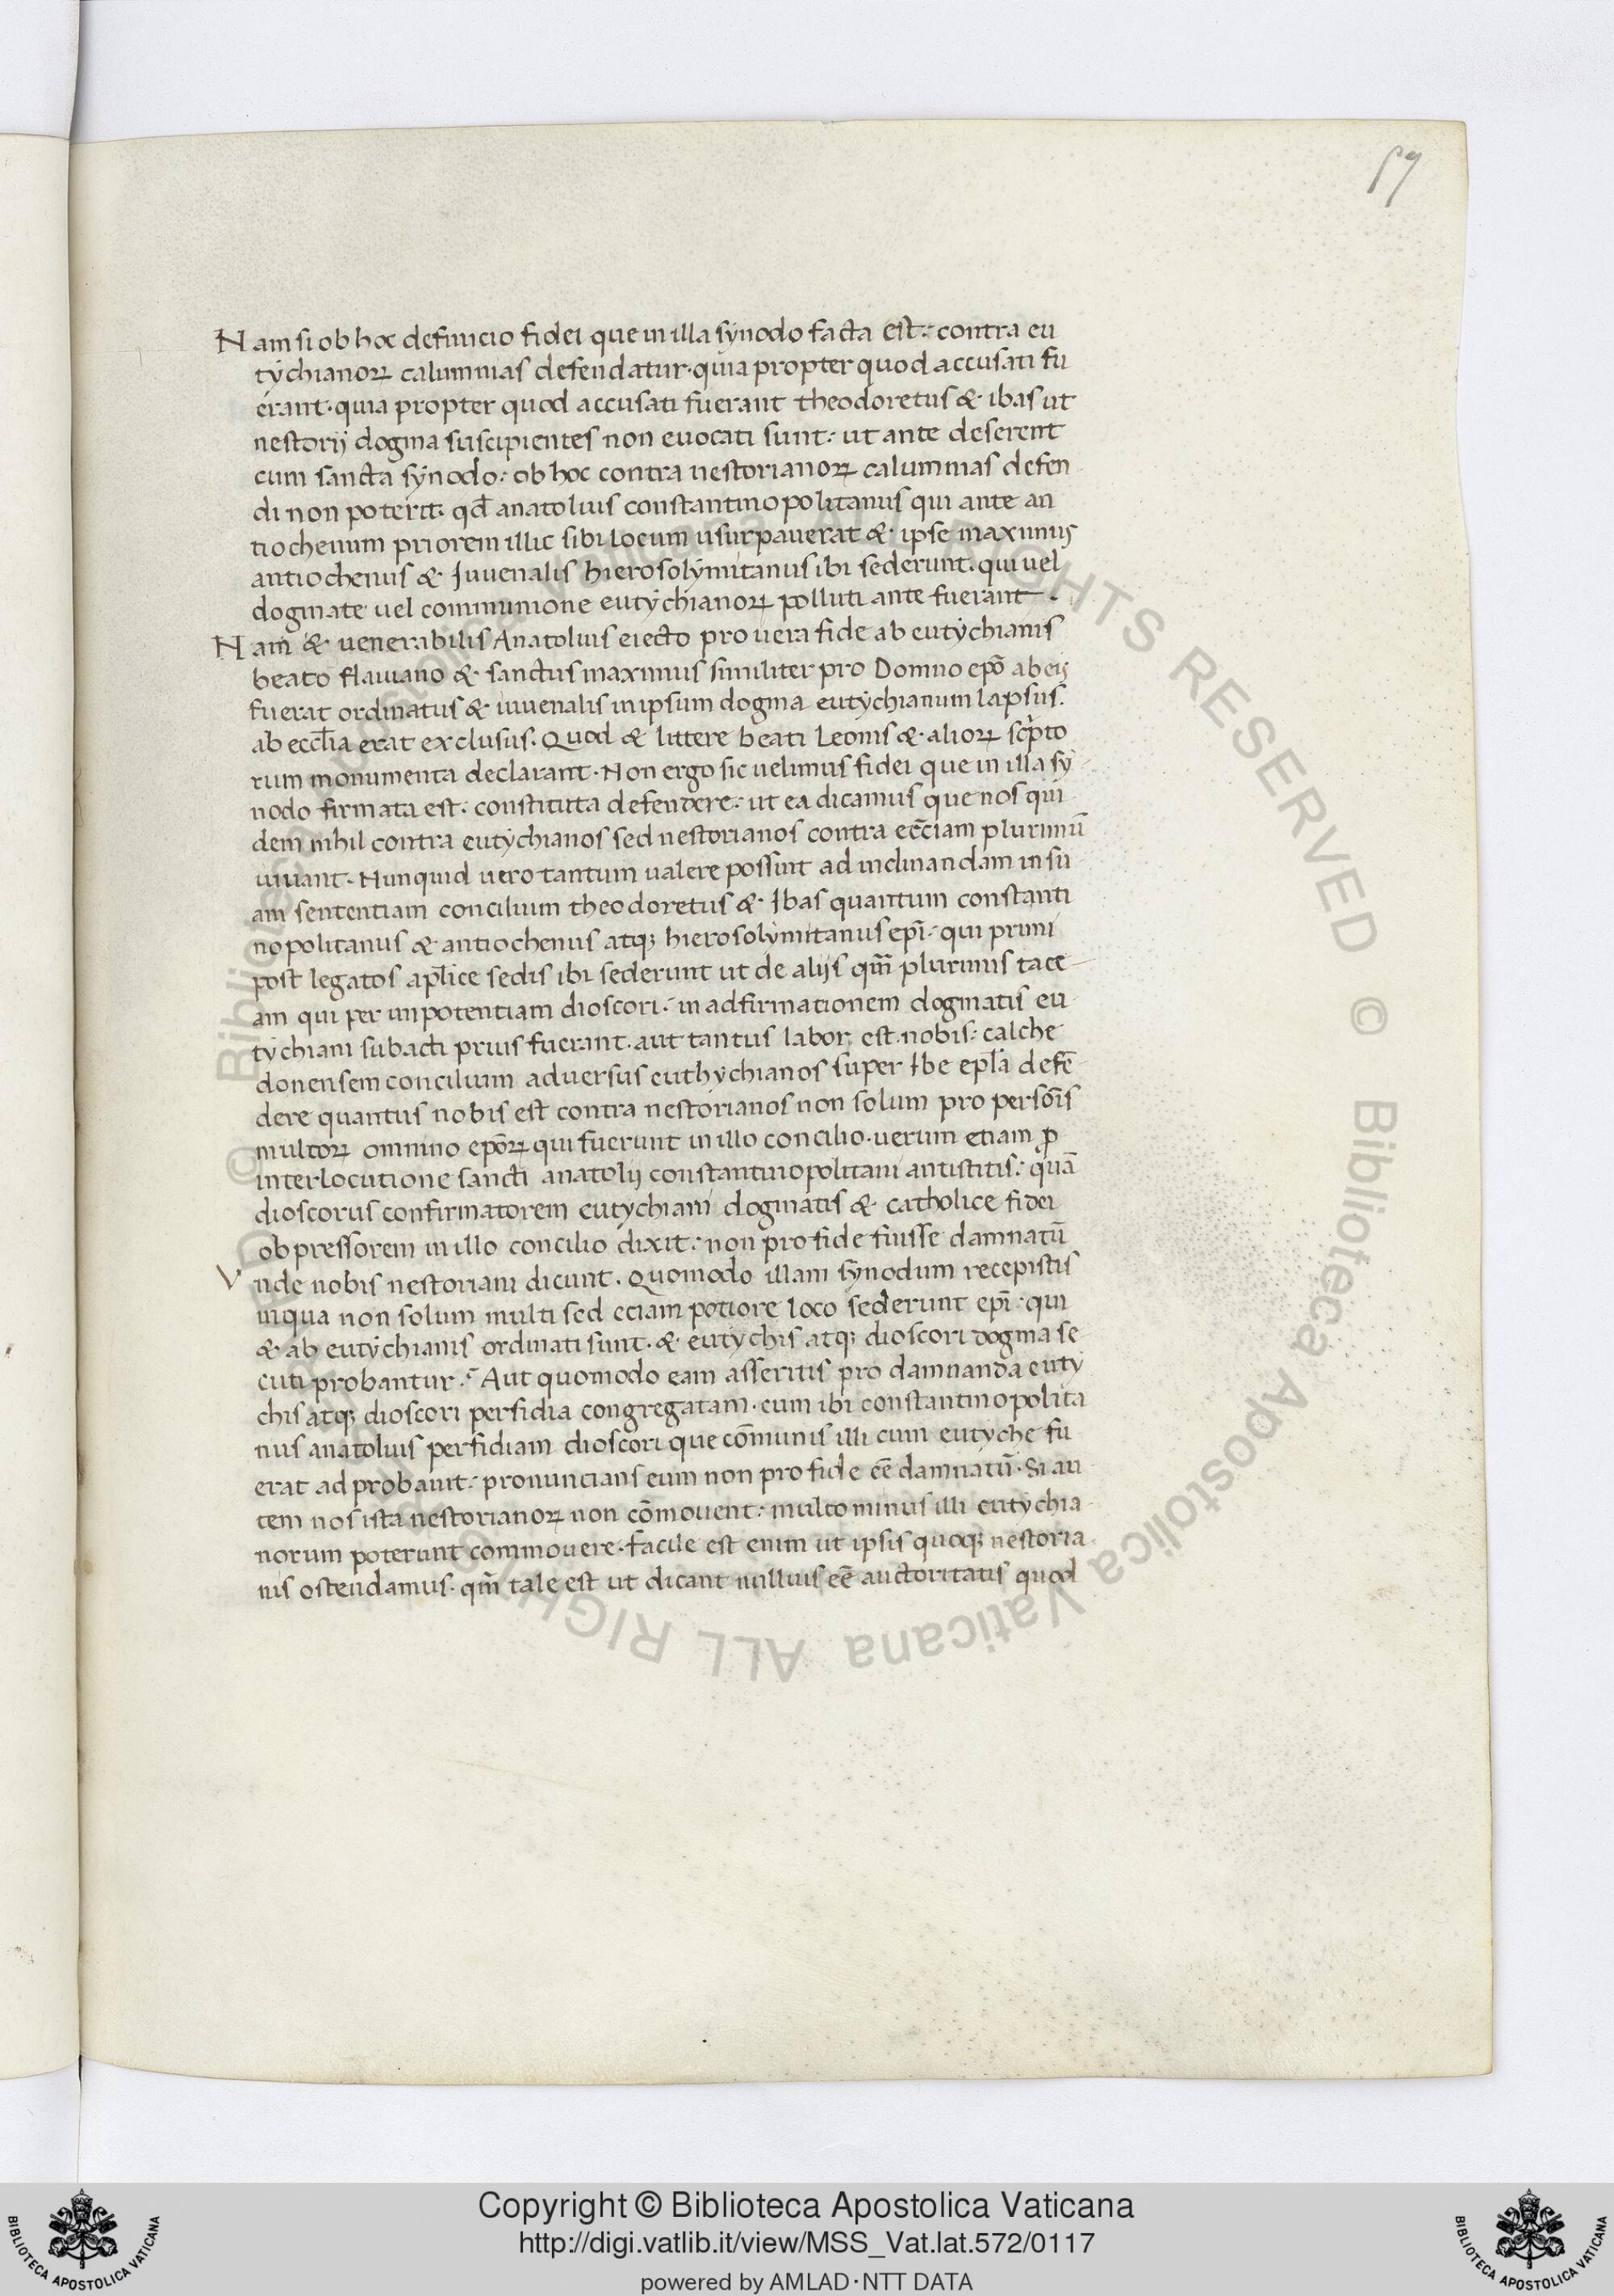 57
Nam si ob hoc definicio fidei que in illa synodo facta est: contra eu
tychianoꝝ calumnias defendatur. quia propter quod accusati fu
erant. quia propter quod accusati fuerant theodoretus & ibas ut
nestorij dogma suscipientes non euocati sunt: ut ante deserent
cum sancta synodo: ob hoc contra nestorianoꝝ calumnias defen
di non poterit. qđ anatolius constantinopolitanus qui ante an
tiochenum priorem illic sibi locum usurpauerat & ipse maximus
antiochenus & Juuenalis hierosolymitanus ibi sederunt. qui uel
dogmate uel communione eutychianoꝝ polluti ante fuerant.
Nam & uenerabilis Anatolius eiecto pro uera fide ab eutychianis
beato flauiano & sanctus maximus similiter pro Domno epō ab eis
fuerat ordinatus & iuuenalis in ipsum dogma eutychianum lapsus.
ab eccłia erat exclusus. Quod & littere beati Leonis & alioꝝ scͥpto
rum monumenta declarant. Non ergo sic uelimus fidei que in illa sy
nodo firmata est. constituta defendere: ut ea dicamus que nos qui
dem nihil contra eutychianos sed nestorianos contra ecc̄iam plurimū
iuuant. Nunquid uero tantum ualere possunt ad inclinandam in su
am sententiam concilium theodoretus & Ibas quantum constanti
nopolitanus & antiochenus atqꝫ hierosolymitanus epī. qui primi
post legatos aplice sedis ibi sederunt ut de alijs qm̄ plurimis tace
am qui per impotentiam dioscori: in adfirmationem dogmatis eu
tychiani subacti prius fuerant. aut tantus labor est nobis: calche
donensem concilium aduersus euthychianos super Ibe epła defē
dere quantus nobis est contra nestorianos non solum pro persōis
multoꝝ omnino epōꝝ qui fuerunt in illo concilio. uerum etiam ꝓ
interlocutione sancti anatolij constantinopolitani antistitis: quā
dioscorus confirmatorem eutychiani dogmatis & catholice fidei
obpressorem in illo concilio dixit: non pro fide fuisse damnatū
Vnde nobis nestoriani dicunt. Quomodo illam synodum recepistis
inqua non solum multi sed etiam potiore loco sederunt epī: qui
& ab eutychianis ordinati sunt. & eutychis atqꝫ dioscori dogma se
cuti probantur.? Aut quomodo eam asseritis pro damnanda euty
chis atqꝫ dioscori perfidia congregatam. cum ibi constantinopolita
nus anatolius perfidiam dioscori que cōmunis illi cum eutyche fu
erat adprobauit: pronuncians eum non pro fide eē damnatū. Si au
tem nos ista nestorianoꝝ non cōmouent: multo minus illi eutychia
norum poterunt commouere. facile est enim ut ipsis quoqꝫ nestoria
nis ostendamus. qm̄ tale est ut dicant nullius eē auctoritatis quod
© Biblioteca Apostolica Vaticana ALL RIGHTS RESERVED
© Biblioteca Apostolica Vaticana ALL RIGHTS RESERVED
BIBLIOTECA APOSTOLICA VATICANA
Copyright © Biblioteca Apostolica Vaticana
http://digi.vatlib.it/view/MSS_Vat.lat.572/0117
powered by AMLAD·NTT DATA
BIBLIOTECA APOSTOLICA VATICANA